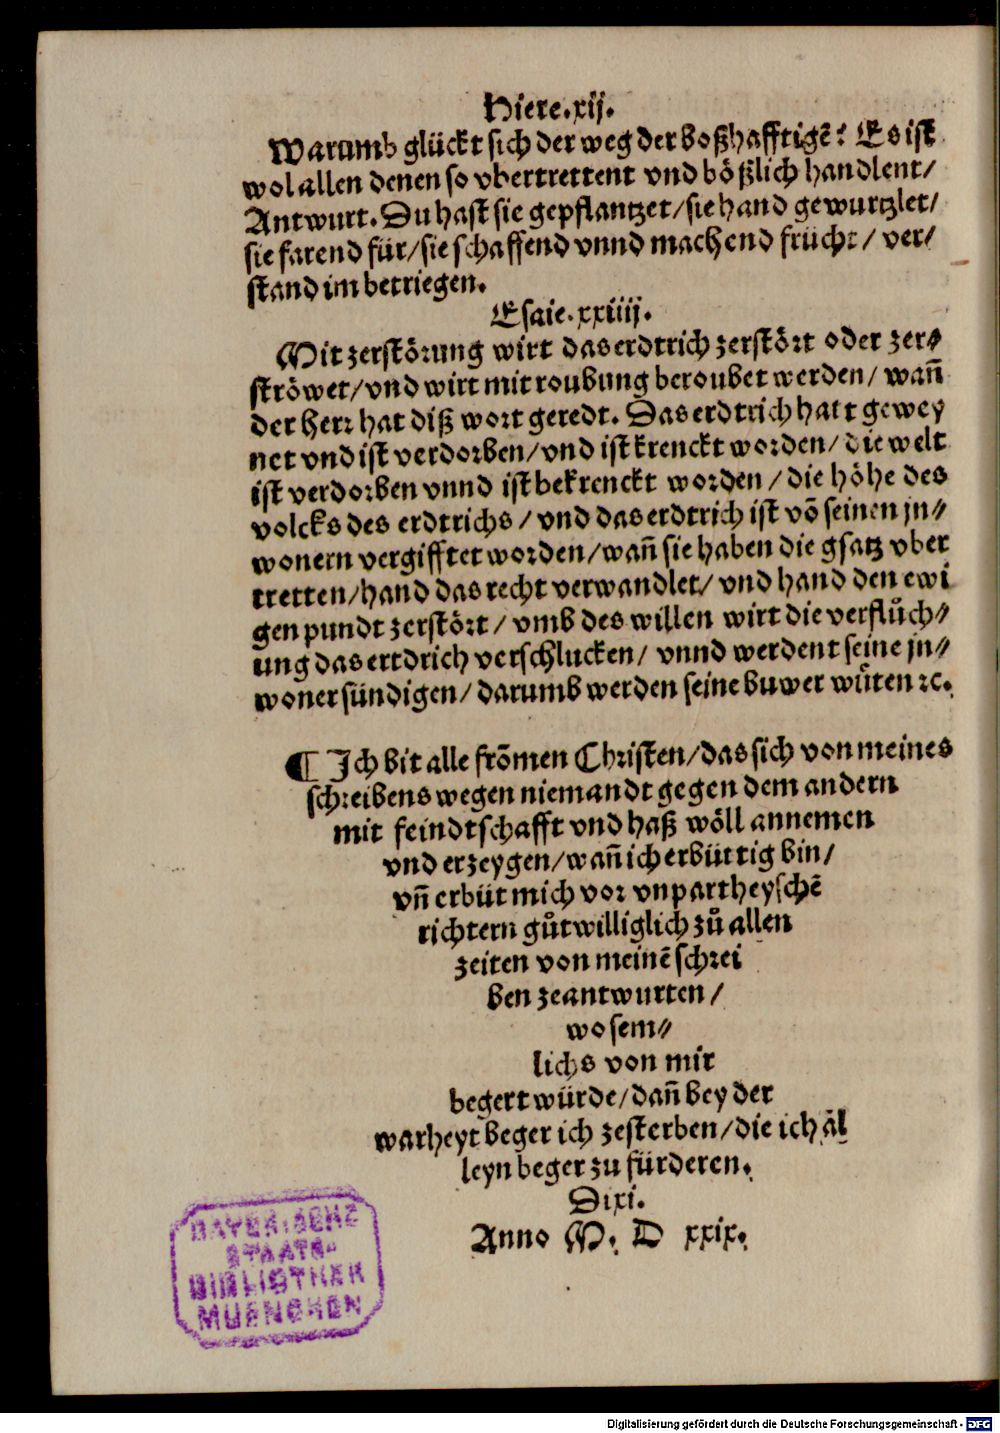 Hiere.xij.
Warumb glückt sich der weg der boßhafftigē? Es ist
wol allen denen so vbertrettent vnd bößlich handlent/
Antwurt. Du hast sie gepflantzet/sie hand gewurtzlet/
sie farend für/sie schaffend vnnd machend frücht/ ver⸗
stand im betriegen.
Esaie.xxiiij.
Mit zerstörung wirt das erdtrich zerstört oder zer⸗
ströwet/vnd wirt mit roubung beroubet werden/ wañ
der Herr hat diß wort geredt. Das erdtrich hatt gewey
net vnd ist verdorben/vnd ist krenckt worden/ die welt
ist verdorben vnnd ist bekrenckt worden/ die höhe des
volcks des erdtrichs/ vnd das erdtrich ist vō seinen jn⸗
wonern vergifftet worden/wañ sie haben die gsatz vber
tretten/hand das recht verwandlet/ vnd hand den ewi
gen pundt zerstört/ vmb des willen wirt die verflůch⸗
ung das ertdrich verschlucken/ vnnd werdent seine jn⸗
woner sündigen/ darumb werden seine buwer wůten ꝛc.
¶ Ich bit alle frōmen Christen/das sich von meines
schreibens wegen niemandt gegen dem andern
mit feindtschafft vnd haß wöll annemen
vnd erzeygen/wañ ich erbüttig bin/
vñ erbüt mich vor vnpartheyschē
richtern gůtwilliglich zů allen
zeiten von meinē schrei
ben zeantwurten/
wo sem⸗
lichs von mir
begert würde/dañ bey der
warheyt beger ich zesterben/die ich al
leyn beger zu fürderen.
Dixi.
Anno M. D xxix.
BAYERISCHE
STAATS-
BIBLIOTHEK
MUENCHEN
Digitalisierung gefördert durch die Deutsche Forschungsgemeinschaft - DFG